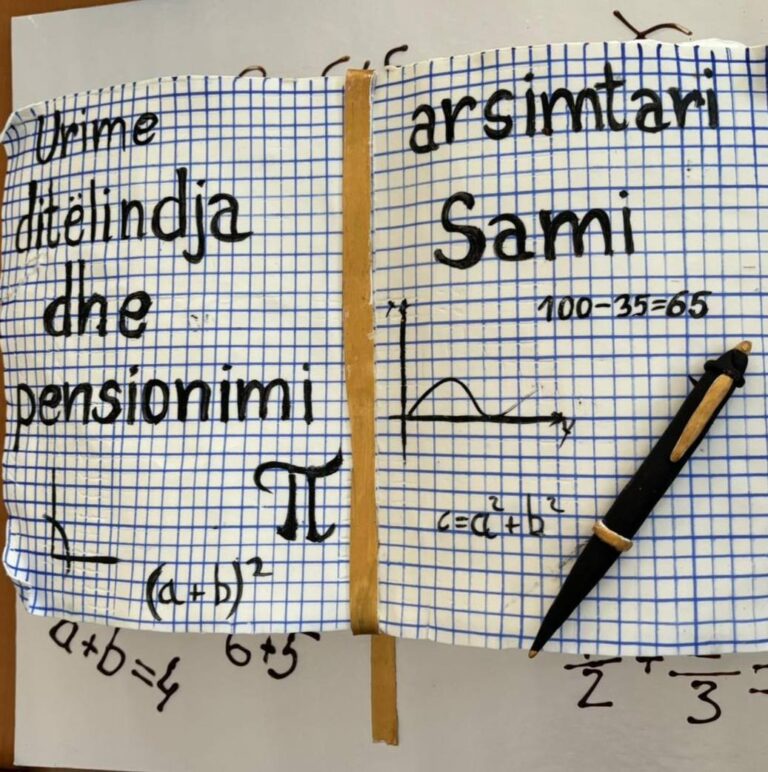 Urime
ditëlindja
dhe
pensionimi
π
(a+b)²
arsimtari
Sami
100-35=65
y
c=a²+b²
a+b=4
6+5